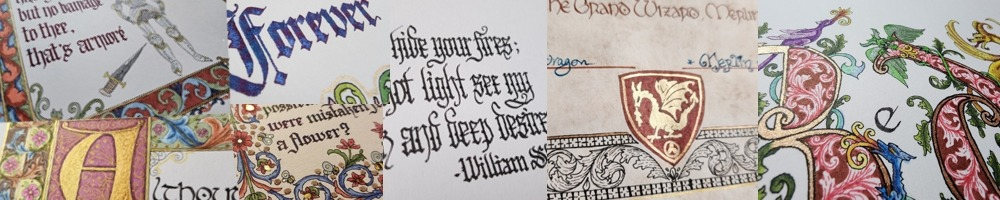 but no damage
to thee,
that's armoré
A
thou
Forever
were mistaken
a flower?
hide your fires;
ot light see my
and deep desire
-William S
The Grand Wizard, Merlin
Dragon
Merlin
e